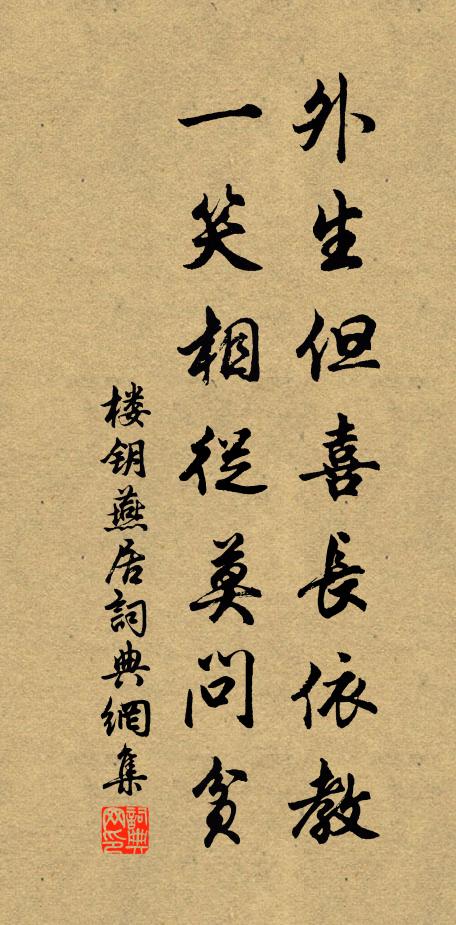 外生但喜長依教
一笑相從莫問貧
楼钥燕居詞典網集
詞典网印